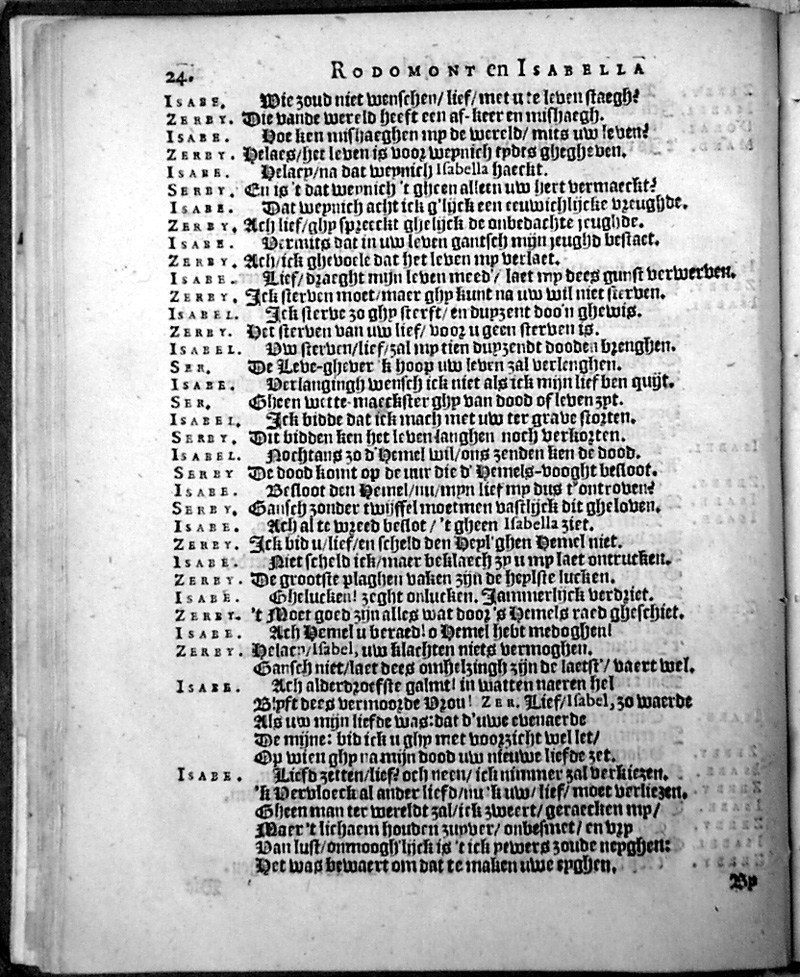 24. RODOMONT en ISABELLA
ISABE. Wie zoud niet wenschen/ lief/ met u te leven staegh?
ZERBY. Die vande wereld heeft een af-keer en mishaegh.
ISABE. Hoe ken mishaeghen my de wereld/ mits uw leven?
ZERBY. Helaes/ het leven is voor weynich tydts ghegheven.
ISABE. Helaey/ na dat weynich Isabella haeckt.
SERBY. En is 't dat weynich 't gheen alleen uw hert vermaeckt?
ISABE. Dat weynich acht ick g'lijck een eeuwichlijcke vreughde.
ZERBY. Ach lief/ ghy spreeckt ghelijck de onbedachte jeughde.
ISABE. Vermits dat in uw leven gantsch mijn jeughd bestaet.
ZERBY. Ach/ ick ghevoele dat het leven my verlaet.
ISABE. Lief/ draeght mijn leven meed'/ laet my dees gunst verwerven.
ZERBY. Ick sterven moet/ maer ghy kunt na uw wil niet sterven.
ISABEL. Ick sterve zo ghy sterft/ en duyzent doo'n ghewis.
ZERBY. Het sterven van uw lief/ voor u geen sterven is.
ISABEL. Uw sterven/ lief/ zal my tien duyzendt dooden brenghen.
SER. De Leve-ghever 'k hoop uw leven zal verlenghen.
ISABE. Verlangingh wensch ick niet als ick mijn lief ben quijt.
SER. Gheen wette-maeckster ghy van dood of leven zyt.
ISABEL. Ick bidde dat ick mach met uw ter grave storten.
SERBY. Dit bidden ken het leven langhen noch verkorten.
ISABEL. Nochtans zo d'Hemel wil/ ons zenden ken de dood.
SERBY De dood komt op de uur die d' Hemels-vooght besloot.
ISABE. Besloot den Hemel/ nu/ myn lief my dus t'ontroven?
SERBY. Gansch zonder twijffel moetmen vastlijck dit gheloven.
ISABE. Ach al te wreed beslot/ 't gheen Isabella ziet.
ZERBY. Ick bid u/ lief/ en scheld den Heyl'ghen Hemel niet.
ISABE. Niet scheld ick/ maer beklaech zy u my laet ontrucken.
ZERBY. De grootste plaghen vaken zijn de heylste lucken.
ISABE. Ghelucken! zeght onlucken. Jammerlijck verdriet.
ZERBY. 't Moet goed zijn alles wat door 's Hemels raed gheschiet.
ISABE. Ach Hemel u beraed! o Hemel hebt medoghen!
ZERBY. Helaey/ Isabel, uw klachten niets vermoghen.
Gansch niet/ laet dees omhelzingh zijn de laetst'/ vaert wel.
ISABE. Ach alderdroefste galmt! in watten naeren hel
Blyft dees vermoorde Vrou! ZER. Lief/ Isabel, zo waerde
Als uw mijn liefde was: dat d'uwe evenaerde
De mijne: bid ick u ghy met voorzicht wel let/
Op wien ghy na mijn dood uw nieuwe liefde zet.
ISABE. Liefd zetten/ lief? och neen/ ick nimmer zal verkiezen.
'k Vervloeck al ander liefd/ nu 'k uw/ lief/ moet verliezen.
Gheen man ter wereldt zal/ ick zweert/ geraecken my/
Maer 't lichaem houden zuyver/ onbesmet/ en vry
Van lust/ onmoogh'lijck is 't ick yewers zoude neyghen:
Het was bewaert om dat te maken uwe eyghen.
By